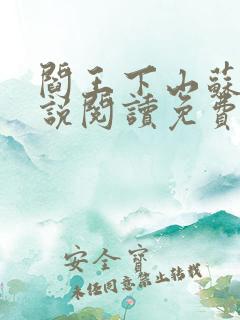 閻王下山蘇
說閱讀免費
安全寶
未经同意禁止转载